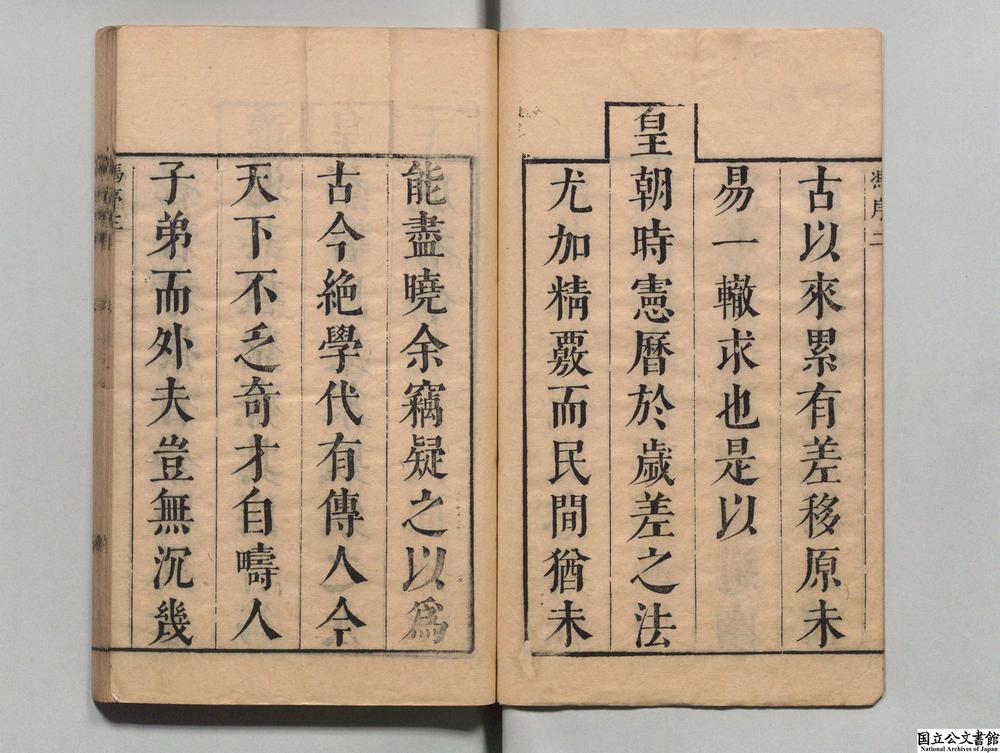 古以來累有差移原未
易一轍求也是以
皇朝時憲曆於歲差之法
尤加精覈而民間猶未
能盡曉余竊疑之以爲
古今絶學代有傳人今
天下不乏奇才自疇人
子弟而外夫豈無沉幾
国立公文書館
National Archives of Japan